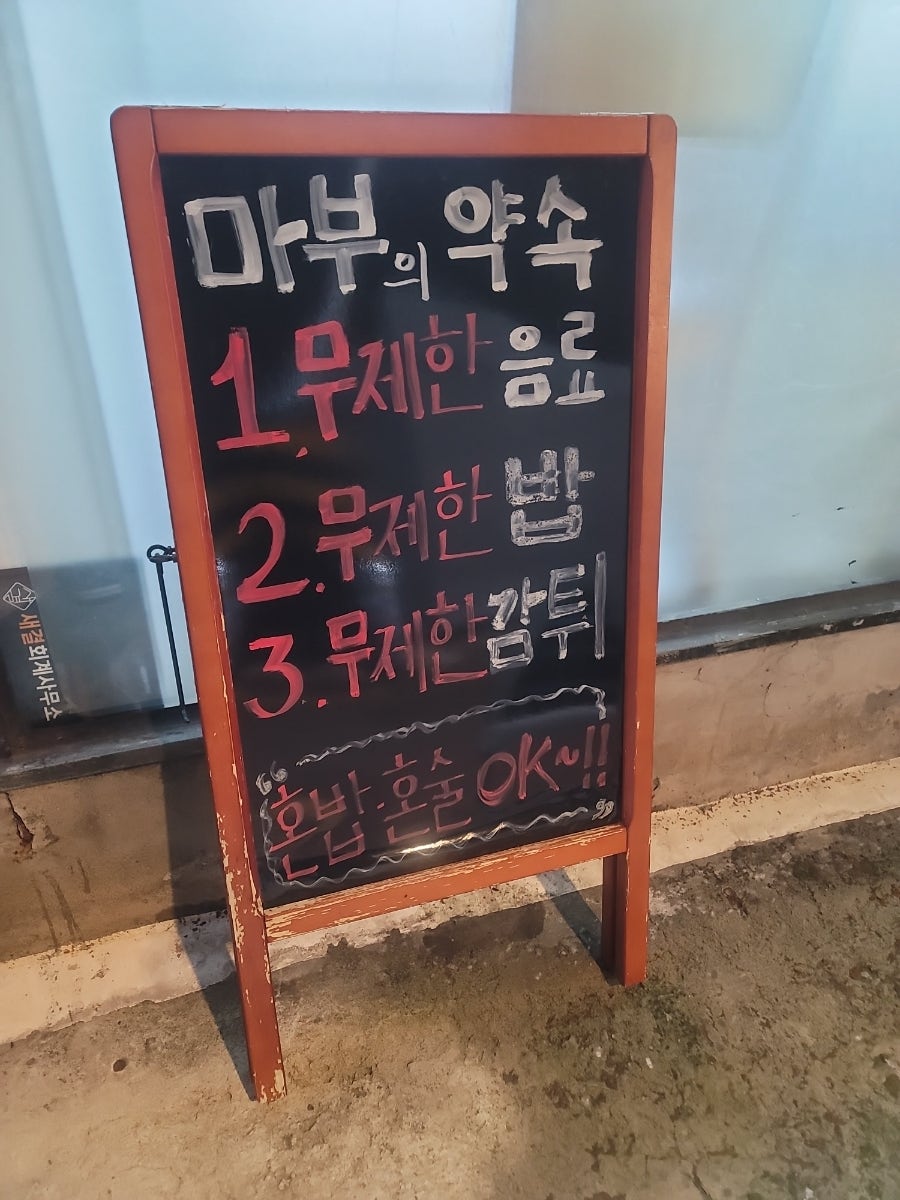 마부의 약속
1. 무제한 음료
2. 무제한 밥
3. 무제한 감튀
“혼밥·혼술 OK~!!”
새결회계사무소